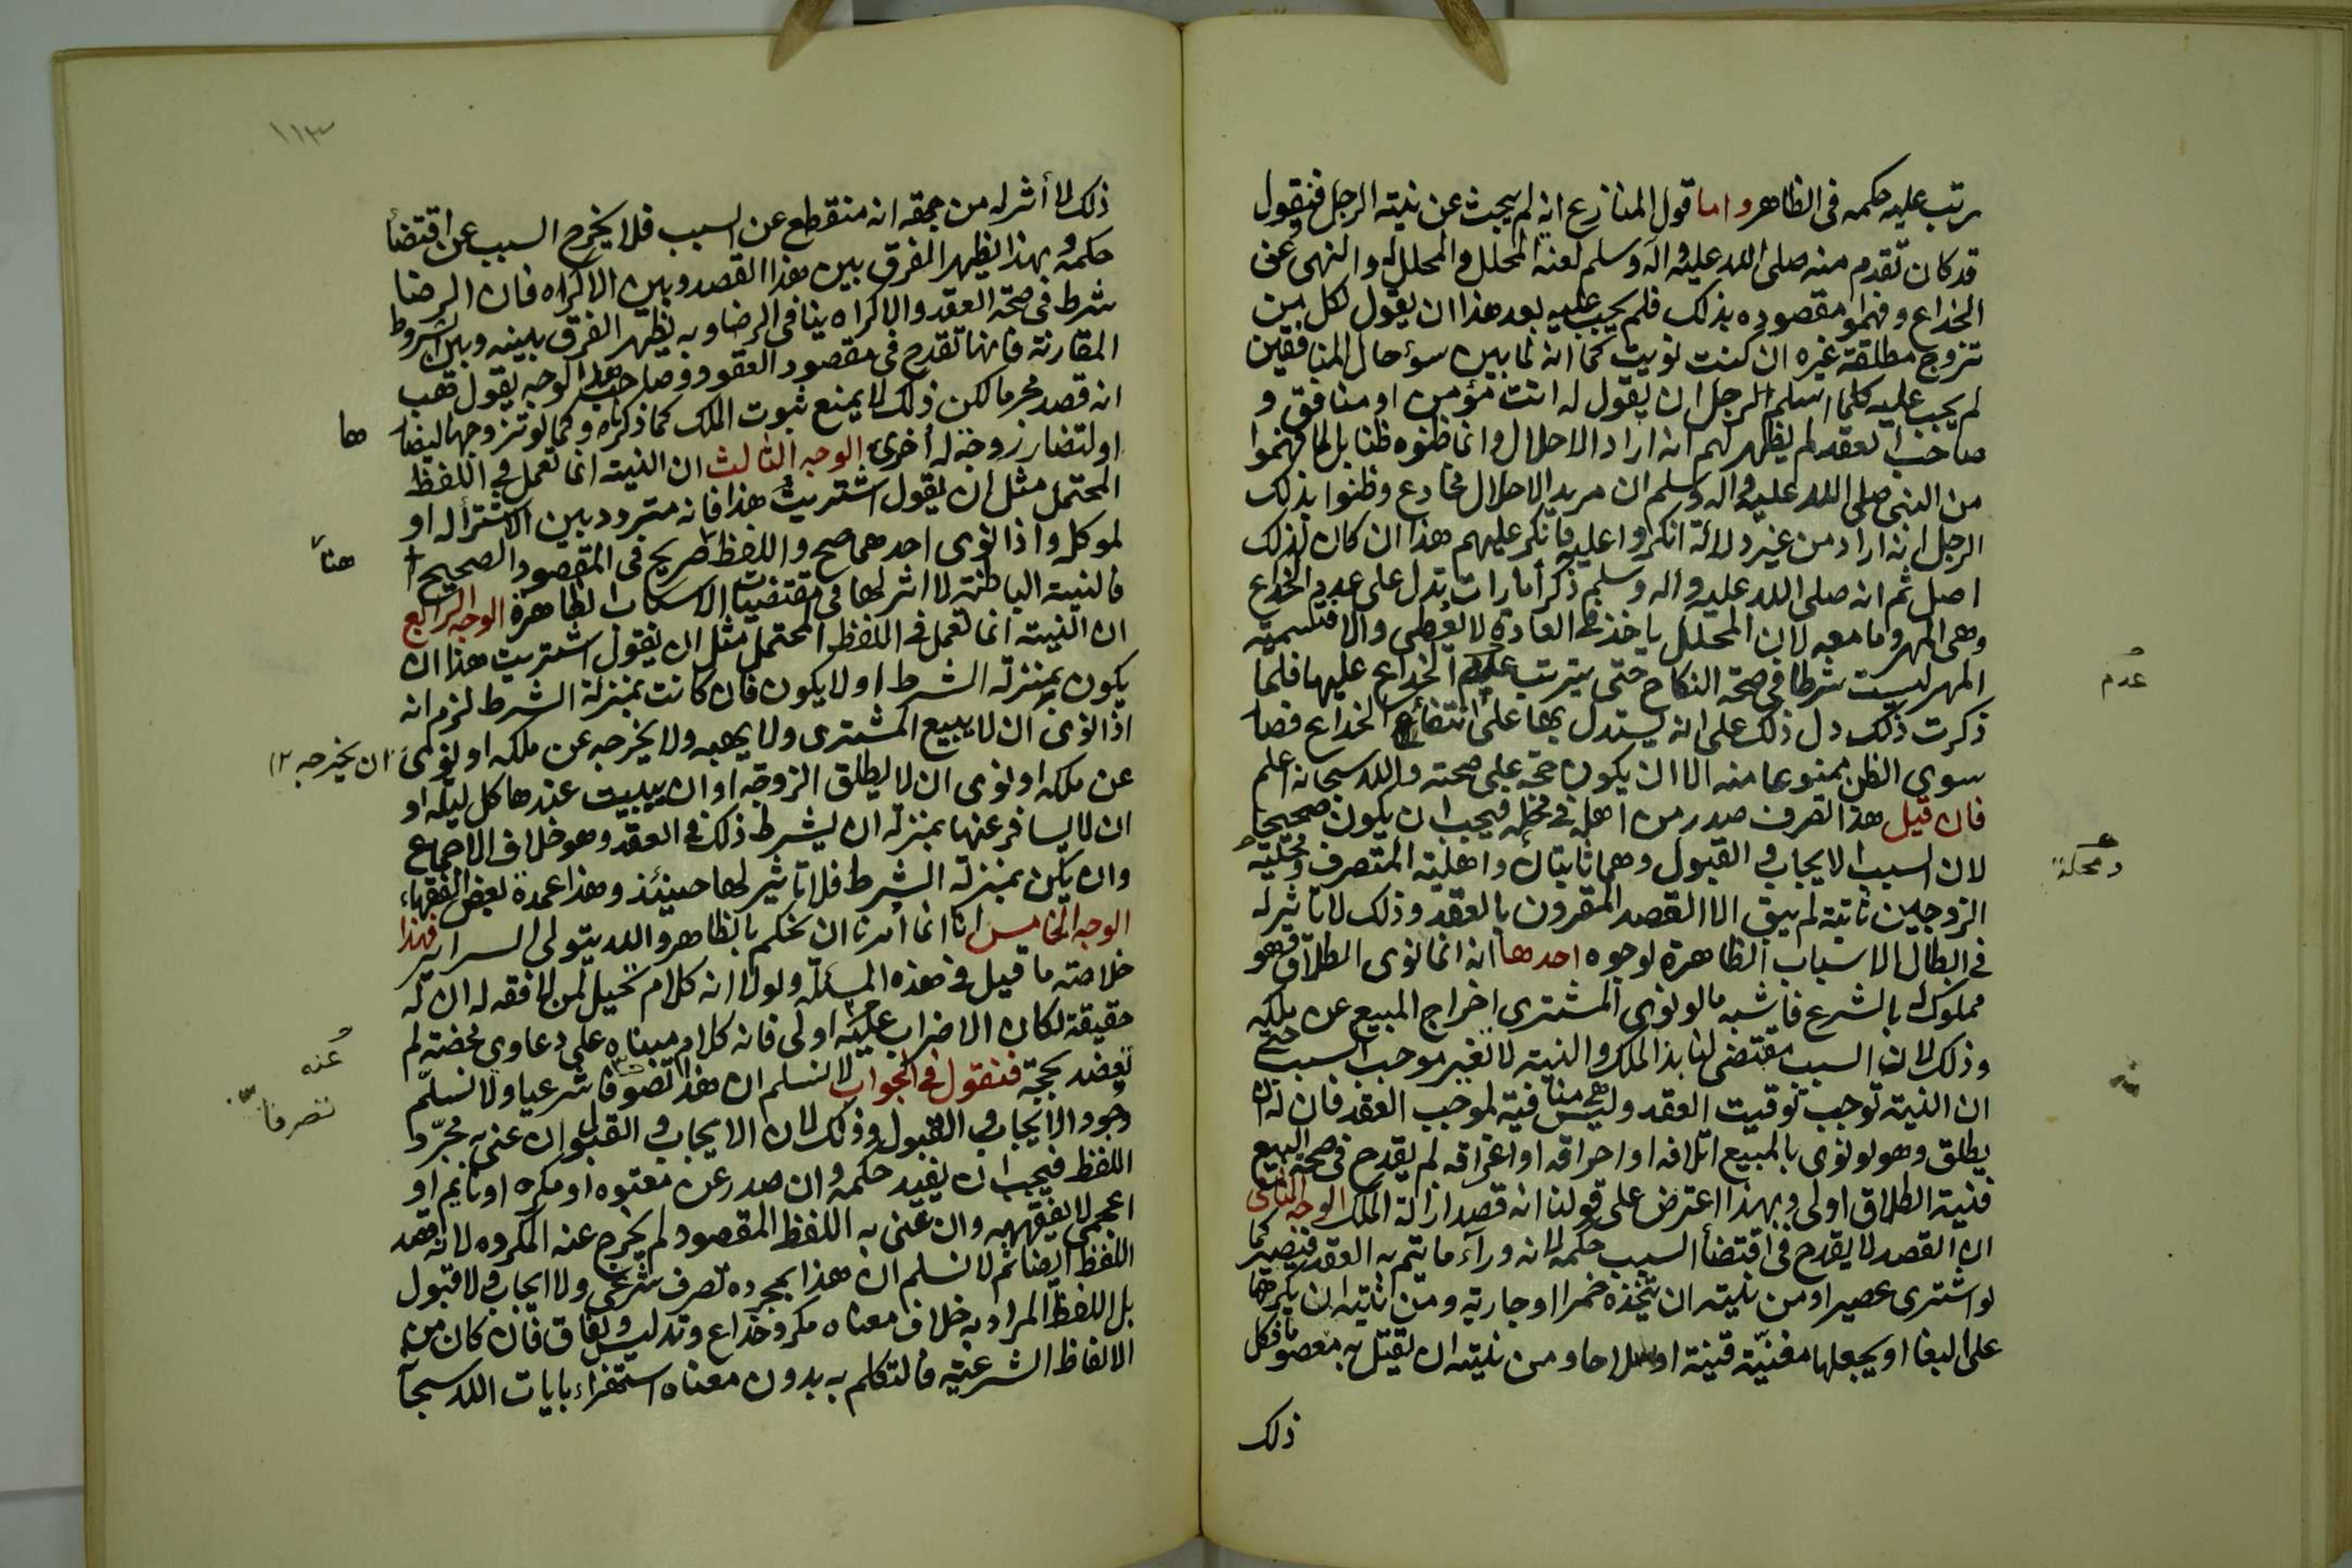 يرتب عليه حكمه فى الظاهر واما قول المنازع انه لم يبحث عن نية الرجل فنقول
قد كان تقدم منه صلى الله عليه وآله وسلم لعنة المحلل والمحلل له والنهى عن
الخداع وفهموا مقصوده بذلك فلم يجب عليه بعد هذا ان يقول لكل من
تزوج مطلقة غيره ان كنت نويت كما انه لما بين سوء حال المنافقين
لم يجب عليه كلما اسلم الرجل ان يقول له انت مؤمن او منافق و
صاحب العقد لم يظهر لهم انه اراد الاحلال وانما ظنوه ظنا بل لما فهموا
من النبى صلى الله عليه وآله وسلم ان مريد الاحلال مخادع وظنوا بذلك
الرجل انه اراد من غير دلالة انكروا عليه فانكر عليهم هذا ان كان لذلك
اصل ثم انه صلى الله عليه وآله وسلم ذكر أمارات تدل على عدم الخداع
وهى المهر وما معه لان المحلل ياخذ فى العادة لا يعطى والا فتسمية
المهر ليست شرطا فى صحة النكاح حتى يترتب عدم الخداع عليها فلما
عدم
ذكرت ذلك دل ذلك على انه يستدل بها على انتفاء الخداع فصا
سوى الظن ممنوعا منه الا ان يكون حجة على صحته والله سبحانه اعلم
فان قيل هذا التصرف صدر من اهله فى محله فيجب ان يكون صحيحا
لان السبب الايجاب والقبول وهما ثابتان واهلية المتصرف ومحلية
ومحلية
الزوجين ثابتة لم يبق الا القصد المقرون بالعقد وذلك لا تاثير له
فى ابطال الاسباب الظاهرة لوجوه احدها انه انما نوى الطلاق فهو
مملوك له بالشرع فاشبه ما لو نوى المشترى اخراج المبيع عن ملكه
وذلك لان السبب مقتضى لنا بذا الملك والنية لا تغير موجب السبب حتى
ان النية توجب توقيت العقد وليس هى منافية لموجب العقد فان له ان
يطلق وهو لو نوى بالمبيع اتلافه او احراقه او اغراقه لم يقدح فى صحة البيع
فنية الطلاق اولى وبهذا اعترض على قولنا انه قصد ازالة الملك الوجه الثانى
ان القصد لا يقدح فى اقتضأ السبب حكمه لانه ورآء ما يتم به العقد فتصير كما
لو اشترى عصيرا ومن نيته ان يتخذه خمرا او جارية ومن نيته ان يكرهها
على البغا او يجعلها مغنية قينة او سلاحا ومن نيته ان يقتل به معصوما فكل
ذلك
١١٣
ذلك لا أثر له من جهة انه منقطع عن السبب فلا يخرج السبب عن اقتضأ
حكمه وبهذا يظهر الفرق بين هذا القصد وبين الاكراه فان الرضا
شرط فى صحة العقد والاكراه ينافى الرضا وبه يظهر الفرق بينه وبين الشروط
المقارنة فانها تقدح فى مقصود العقود وصاحب هذا الوجه يقول فهب
انه قصد محرما لكن ذلك لا يمنع ثبوت الملك كما ذكرناه وكما لو تزوجها ليضا
ها
او لتضار زوجة له أخرى الوجه الثالث ان النية انما تعمل فى اللفظ
المحتمل مثل ان يقول اشتريت هذا فانه متردد بين الاشترأ له او
لموكله واذا نوى احدهما صح واللفظ صريح فى المقصود الصحيح
هنا
فالنية الباطنة لا اثر لها فى مقتضيات الاسباب الظاهرة الوجه الرابع
ان النية انما تعمل فى اللفظ المحتمل مثل ان يقول اشتريت هذا ان
يكون بمنزلة الشرط او لا يكون فان كانت بمنزلة الشرط لزم انه
اذا نوى ان لا يبيع المشترى ولا يهبه ولا يخرجه عن ملكه او نوى ان يخرجه
عن ملكه او نوى ان لا يطلق الزوجة او ان يبيت عندها كل ليلة او
ان لا يسافر عنها بمنزلة ان يشرط ذلك فى العقد وهو خلاف الاجماع
وان يكن بمنزلة الشرط فلا تاثير لها حينئذ وهذا عمدة بعض الفقهاء
الوجه الخامس انا انما أمرنا ان نحكم بالظاهر والله يتولى السراير فهذا
خلاصته ما قيل فى هذه المسئلة ولولا انه كلام تحيل لمن لا فقه له ان له
حقيقة لكان الاضراب عليه اولى فانه كلام مبناه على دعاوى محضة لم
عنه
تعضد بحجة فنقول فى الجواب لا نسلم ان هذا تصرفا شرعيا ولا نسلم
تصرفا
وجود الايجاب والقبول وذلك لان الايجاب والقبول ان عنى به مجرد
اللفظ فيجب ان يفيد حكمه وان صدر عن معتوه او مكره او نايم او
اعجمى لا يفقهه وان عنى به اللفظ المقصود لم يخرج عنه المكروه لانه قصد
اللفظ ايضا ثم لا نسلم ان هذا بمجرده تصرف شرعى ولا ايجاب ولا قبول
بل اللفظ المراد به خلاف معناه مكر وخداع وتدليس ونفاق فان كان من
الالفاظ الشرعية فالتكلم به بدون معناه استهزاء بايات الله سبحآ